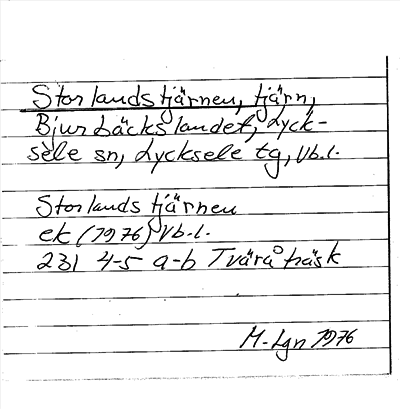 Storlandstjärnen, tjärn,
Bjurbäckslandet, Lyck-
sele sn, Lycksele tg, Vb.l.
Storlandstjärnen
ek (1976) Vb.l.
231 4-5 a-b Tväråträsk
M. Lgn 1976